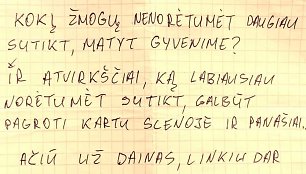 KOKĮ ŽMOGŲ NENORĖTUMĖT DAUGIAU
SUTIKT, MATYT GYVENIME?
IR ATVIRKŠČIAI, KĄ LABIAUSIAI
NORĖTUMĖT SUTIKT, GALBŪT
PAGROTI KARTU SCENOJE IR PANAŠIAI.
AČIŪ UŽ DAINAS, LINKIU DAR